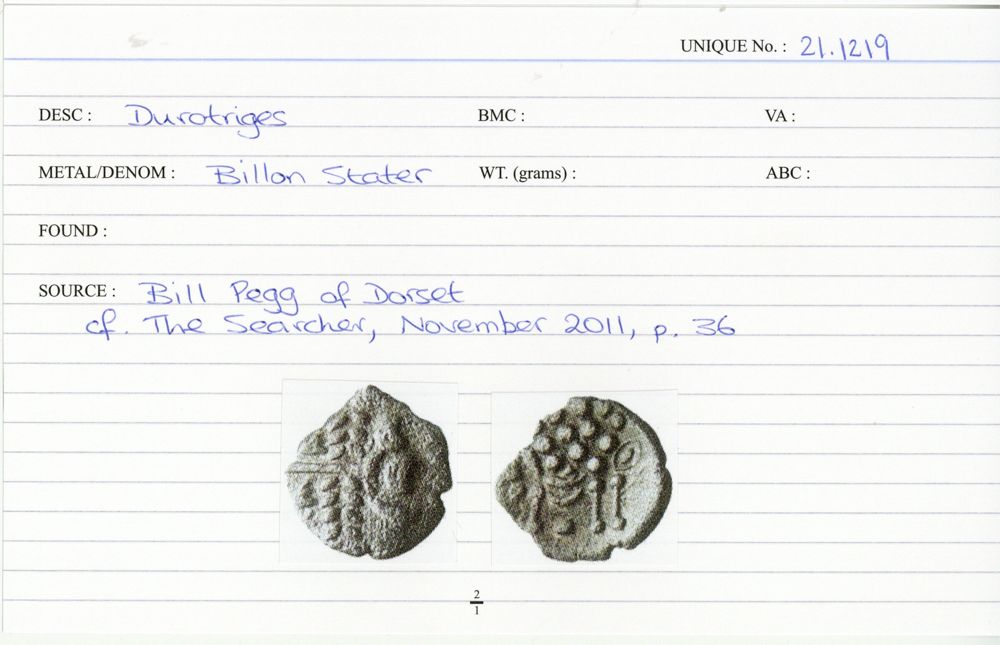 UNIQUE No. : 21.1219
DESC : Durotriges BMC : VA :
METAL/DENOM : Billon Stater WT. (grams) : ABC :
FOUND :
SOURCE : Bill Pegg of Dorset
cf. The Searcher, November 2011, p. 36
2
1